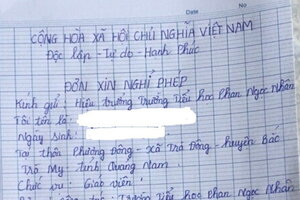 CỘNG HÒA XÃ HỘI CHỦ NGHĨA VIỆT NAM
Độc lập - Tự do - Hạnh Phúc
ĐƠN XIN NGHỈ PHÉP
Kính gửi: Hiệu trưởng Trường Tiểu học Phan Ngọc Nhân
Tôi tên là:
Ngày sinh:
Tại thôn Phương Đông - Xã Trà Đông - huyện Bắc
Trà My - tỉnh Quảng Nam.
Chức vụ: Giáo viên
Trường Tiểu học Phan Ngọc Nhân